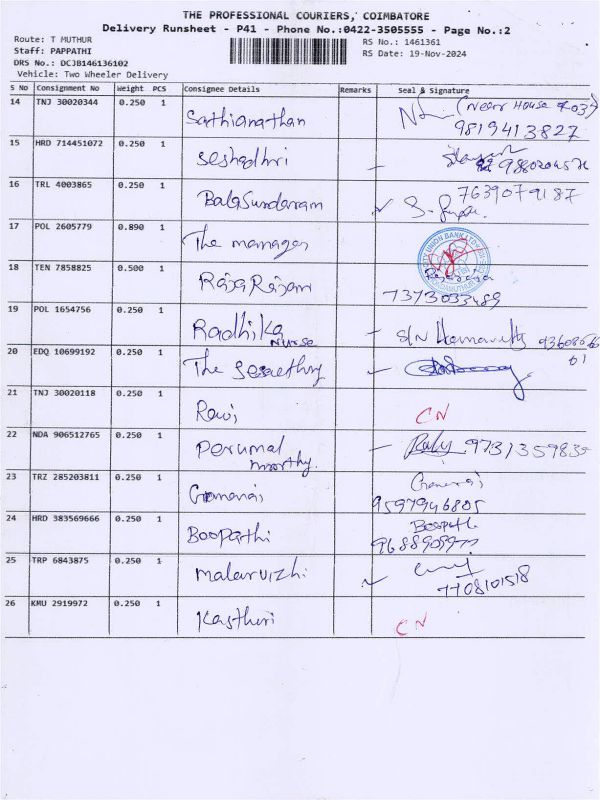 THE PROFESSIONAL COURIERS, COIMBATORE
Delivery Runsheet - P41 - Phone No.:0422-3505555 - Page No.:2
Route: T MUTHUR
RS No.: 1461361
Staff: PAPPATHI
RS Date: 19-Nov-2024
DRS No.: DCJB146136102
Vehicle: Two Wheeler Delivery
S No Consignment No Weight PCS Consignee Details Remarks Seal & Signature
14 TNJ 30020344 0.250 1 Sathianathan
9819413827
15 HRD 714451072 0.250 1 Seshadhri
16 TRL 4003865 0.250 1 BalaSundaram 7639079187
17 POL 2605779 0.890 1 The manager
CITY UNION BANK LTD
18 TEN 7858825 0.500 1 RajaRajan
7373033489
19 POL 1654756 0.250 1 Radhika
Nurse
20 EDQ 10699192 0.250 1 The
21 TNJ 30020118 0.250 1 Ravi CN
22 NDA 906512765 0.250 1 Perumal 9731359835
moorthy.
23 TRZ 285203811 0.250 1
9597946805
24 HRD 383569666 0.250 1 Boopathi Boopathi
25 TRP 6843875 0.250 1 malarvizhi
7708101518
26 KMU 2919972 0.250 1 Kasthuri CN